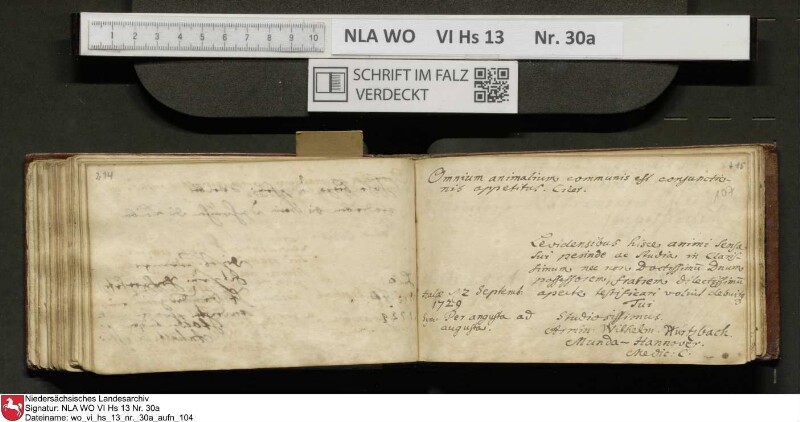 1 2 3 4 5 6 7 8 9 10
NLA WO VI Hs 13 Nr. 30a
SCHRIFT IM FALZ
VERDECKT
214
215
101
Omnium animalium communis est conjunctio-
nis appetitus. Cicer.
Levidensibus hisce animi sensa
sui perinde ac studia in Claris-
simum nec non Doctissimū Dnum
possessorem, fratrem dilectissimū
aperte testificari voluit debuitq
Tui
Studiosissimus
Armin Wilhelm
Munda-Hannover.
Medic: C.
Halae 2 Septemb
1729
Per angusta ad
augusta.
Niedersächsisches Landesarchiv
Signatur: NLA WO VI Hs 13 Nr. 30a
Dateiname: wo_vi_hs_13_nr._30a_aufn_104